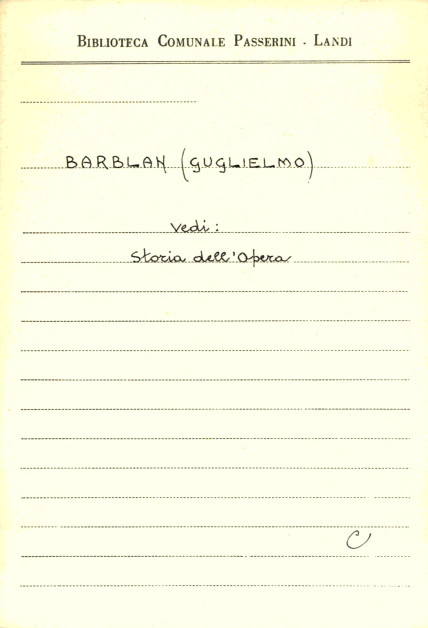 BIBLIOTECA COMUNALE PASSERINI - LANDI
BARBLAN (GUGLIELMO)
vedi:
Storia dell'Opera
C